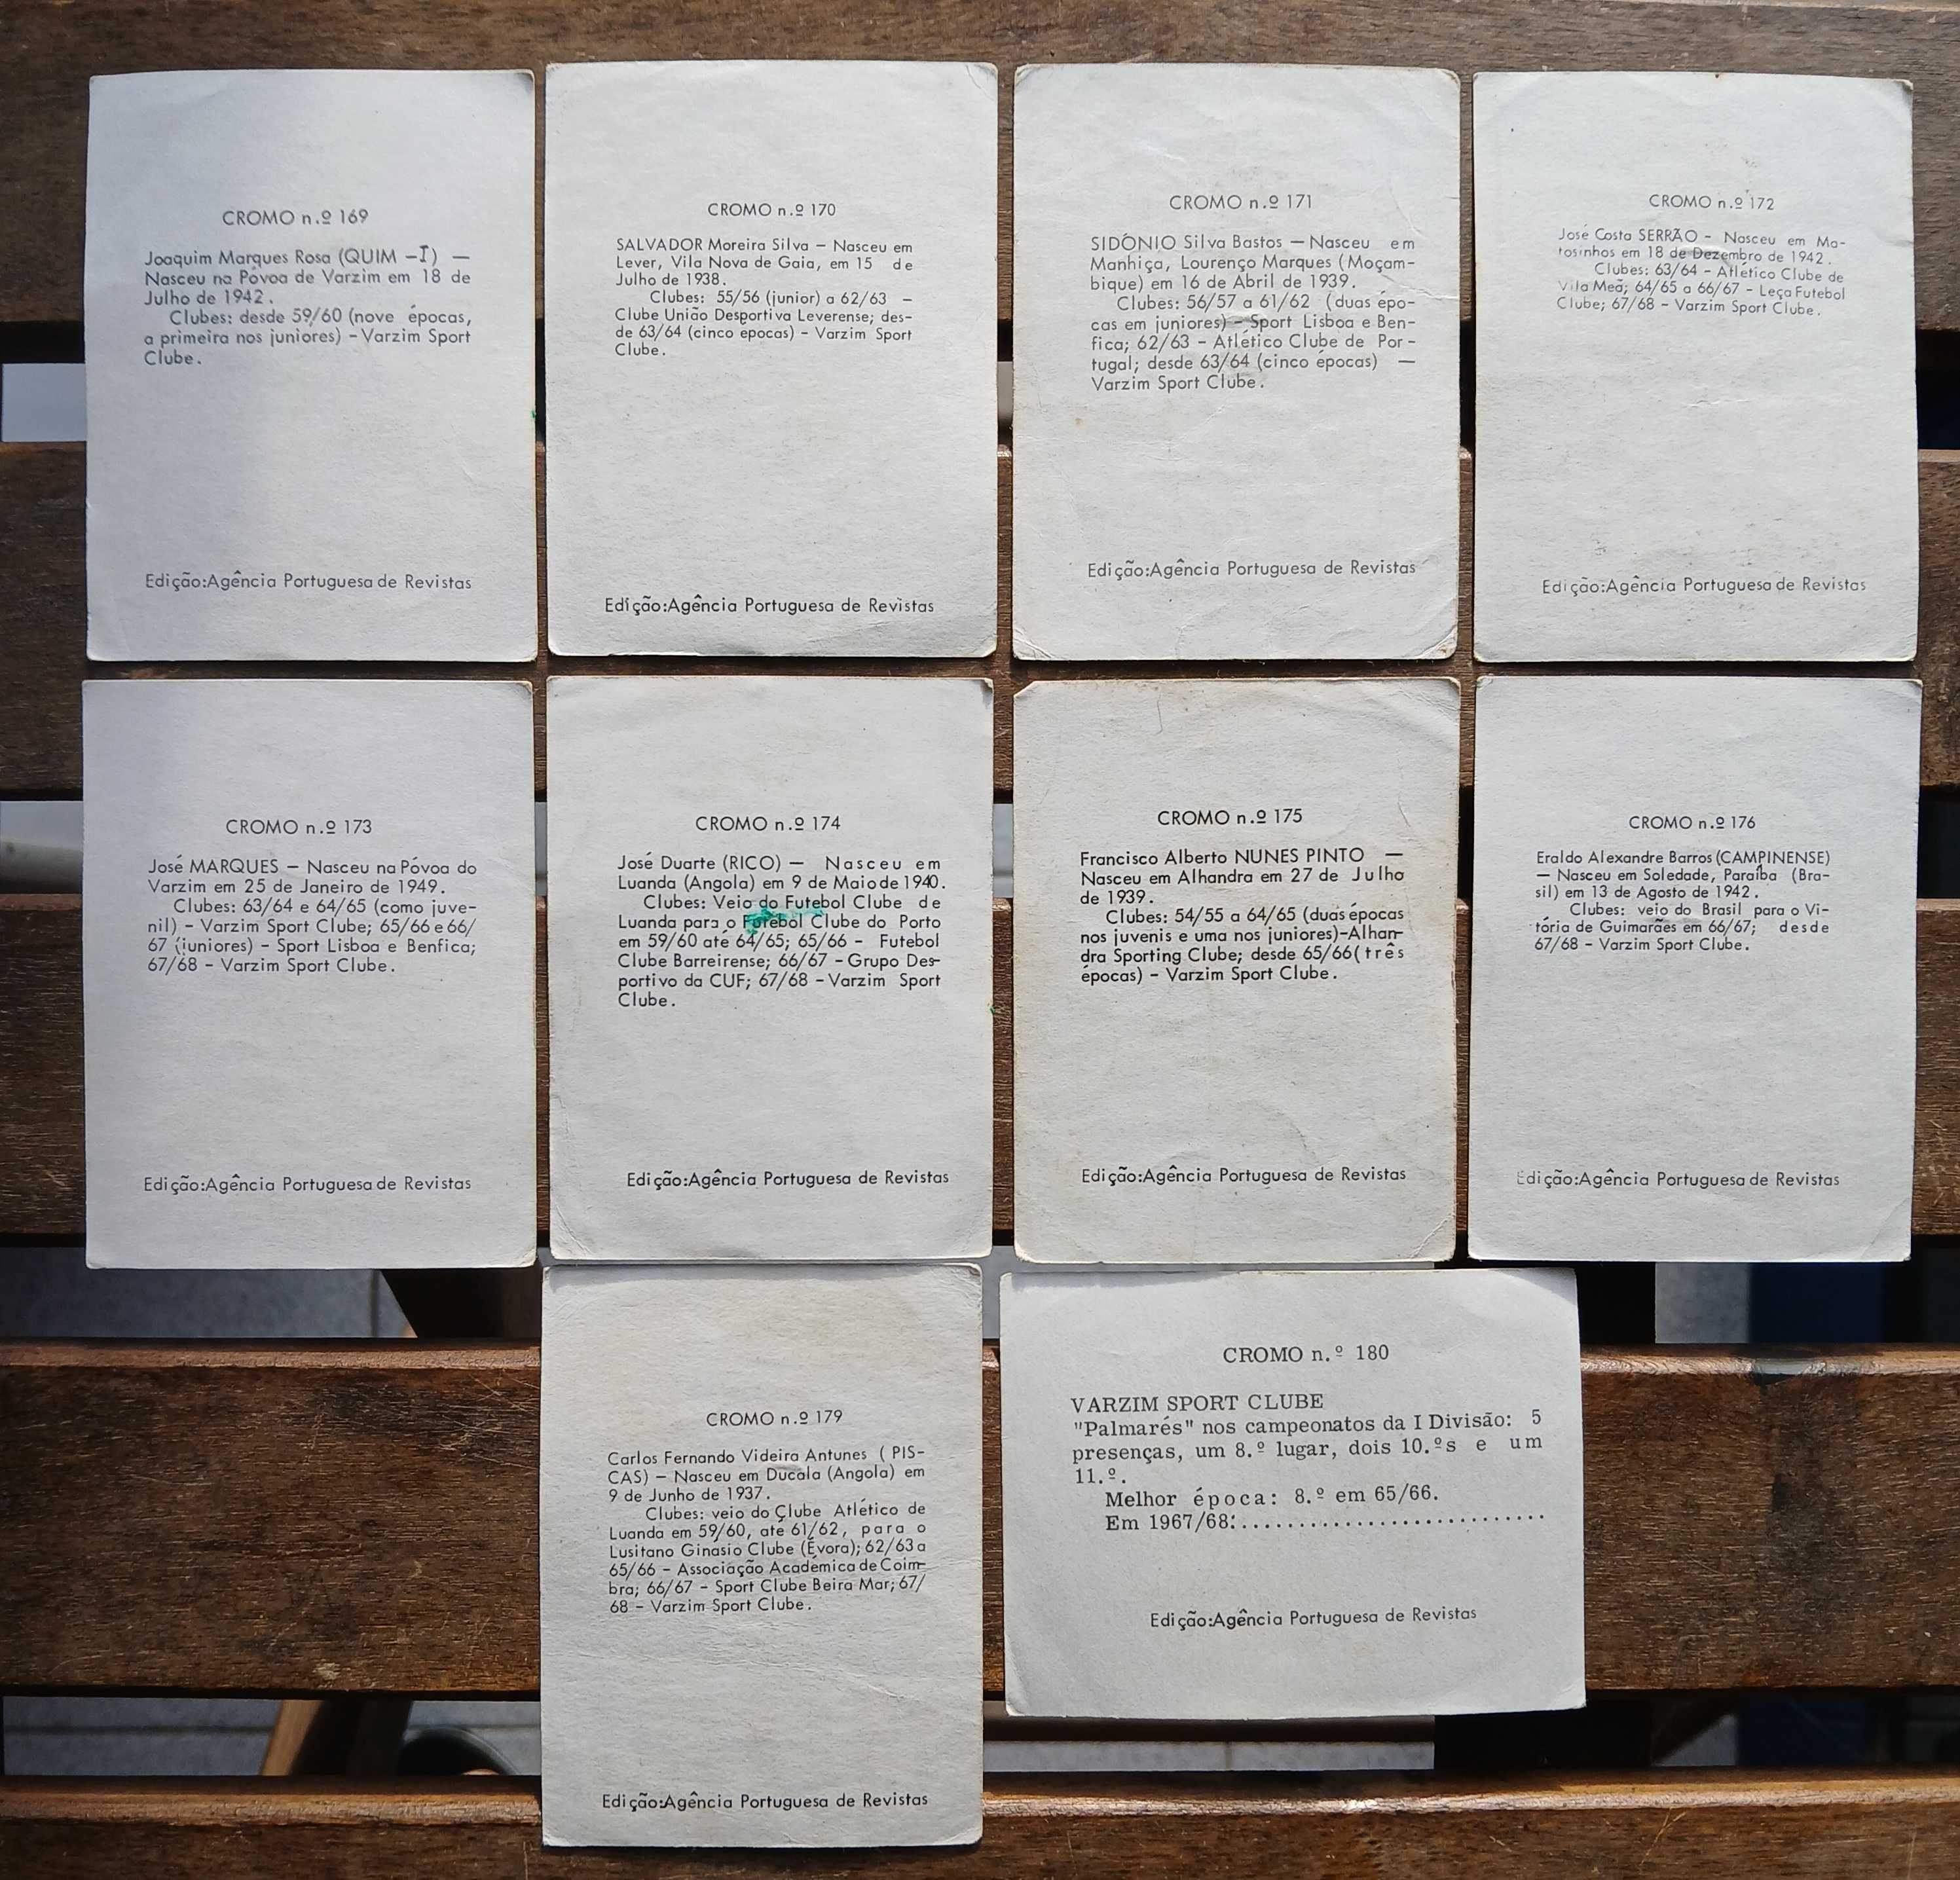 CROMO n.º 169
Joaquim Marques Rosa (QUIM -I) —
Nasceu na Póvoa de Varzim em 18 de
Julho de 1942.
Clubes: desde 59/60 (nove épocas,
a primeira nos juniores) - Varzim Sport
Clube.
Edição:Agência Portuguesa de Revistas
CROMO n.º 170
SALVADOR Moreira Silva — Nasceu em
Lever, Vila Nova de Gaia, em 15 de
Julho de 1938.
Clubes: 55/56 (junior) a 62/63 —
Clube União Desportiva Leverense; des-
de 63/64 (cinco epocas) - Varzim Sport
Clube.
Edição:Agência Portuguesa de Revistas
CROMO n.º 171
SIDÓNIO Silva Bastos — Nasceu em
Manhiça, Lourenço Marques (Moçam-
bique) em 16 de Abril de 1939.
Clubes: 56/57 a 61/62 (duas épo-
cas em juniores) - Sport Lisboa e Ben-
fica; 62/63 - Atlético Clube de Por-
tugal; desde 63/64 (cinco épocas) —
Varzim Sport Clube.
Edição:Agência Portuguesa de Revistas
CROMO n.º 172
José Costa SERRÃO - Nasceu em Ma-
tosinhos em 18 de Dezembro de 1942.
Clubes: 63/64 - Atlético Clube de
Vila Meã; 64/65 a 66/67 - Leça Futebol
Clube; 67/68 - Varzim Sport Clube.
Edição:Agência Portuguesa de Revistas
CROMO n.º 173
José MARQUES — Nasceu na Póvoa do
Varzim em 25 de Janeiro de 1949.
Clubes: 63/64 e 64/65 (como juve-
nil) - Varzim Sport Clube; 65/66 e 66/
67 (juniores) - Sport Lisboa e Benfica;
67/68 - Varzim Sport Clube.
Edição:Agência Portuguesa de Revistas
CROMO n.º 174
José Duarte (RICO) — Nasceu em
Luanda (Angola) em 9 de Maio de 1940.
Clubes: Veio do Futebol Clube de
Luanda para o Futebol Clube do Porto
em 59/60 até 64/65; 65/66 - Futebol
Clube Barreirense; 66/67 - Grupo Des-
portivo da CUF; 67/68 - Varzim Sport
Clube.
Edição:Agência Portuguesa de Revistas
CROMO n.º 175
Francisco Alberto NUNES PINTO —
Nasceu em Alhandra em 27 de Julho
de 1939.
Clubes: 54/55 a 64/65 (duas épocas
nos juvenis e uma nos juniores)-Alhan-
dra Sporting Clube; desde 65/66(três
épocas) - Varzim Sport Clube.
Edição:Agência Portuguesa de Revistas
CROMO n.º 176
Eraldo Alexandre Barros (CAMPINENSE)
— Nasceu em Soledade, Paraíba (Bra-
sil) em 13 de Agosto de 1942.
Clubes: veio do Brasil para o Vi-
tória de Guimarães em 66/67; desde
67/68 - Varzim Sport Clube.
Edição:Agência Portuguesa de Revistas
CROMO n.º 179
Carlos Fernando Videira Antunes ( PIS-
CAS) — Nasceu em Ducala (Angola) em
9 de Junho de 1937.
Clubes: veio do Clube Atlético de
Luanda em 59/60, até 61/62, para o
Lusitano Ginasio Clube (Évora); 62/63 a
65/66 - Associação Académica de Coim-
bra; 66/67 - Sport Clube Beira Mar; 67/
68 - Varzim Sport Clube.
Edição:Agência Portuguesa de Revistas
CROMO n.º 180
VARZIM SPORT CLUBE
"Palmarés" nos campeonatos da I Divisão: 5
presenças, um 8.º lugar, dois 10.ºs e um
11.º.
Melhor época: 8.º em 65/66.
Em 1967/68:...........................
Edição:Agência Portuguesa de Revistas